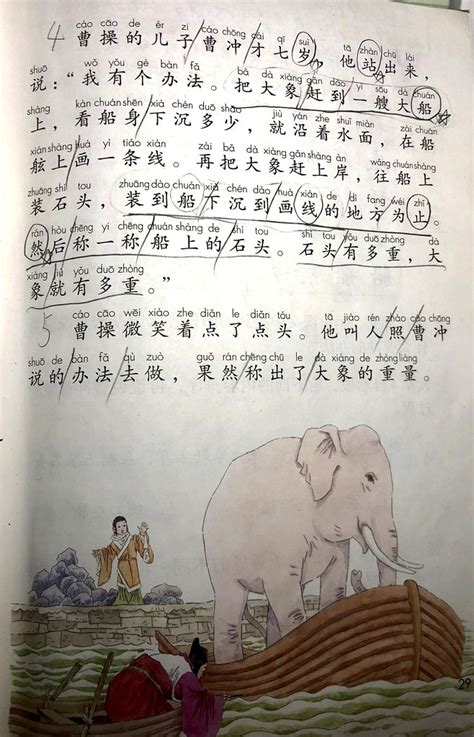 4 cáo cāo de ér zi cáo chōng cái qī suì tā zhàn chū lái
曹操的儿子曹冲才七岁，他站出来，
shuō wǒ yǒu gè bàn fǎ bǎ dà xiàng gǎn dào yì sōu dà chuán
说：“我有个办法。把大象赶到一艘大船
shàng kàn chuán shēn xià chén duō shǎo jiù yán zhe shuǐ miàn zài chuán
上，看船身下沉多少，就沿着水面，在船
xián shàng huà yì tiáo xiàn zài bǎ dà xiàng gǎn shàng àn wǎng chuán shàng
舷上画一条线。再把大象赶上岸，往船上
zhuāng shí tou zhuāng dào chuán xià chén dào huà xiàn de dì fang wéi zhǐ
装石头，装到船下沉到画线的地方为止。
rán hòu chēng yì chēng chuán shàng de shí tou shí tou yǒu duō zhòng dà
然后称一称船上的石头。石头有多重，大
xiàng jiù yǒu duō zhòng
象就有多重。”
5 cáo cāo wēi xiào zhe diǎn le diǎn tóu tā jiào rén zhào cáo chōng
曹操微笑着点了点头。他叫人照曹冲
shuō de bàn fǎ qù zuò guǒ rán chēng chū le dà xiàng de zhòng liàng
说的办法去做，果然称出了大象的重量。
29